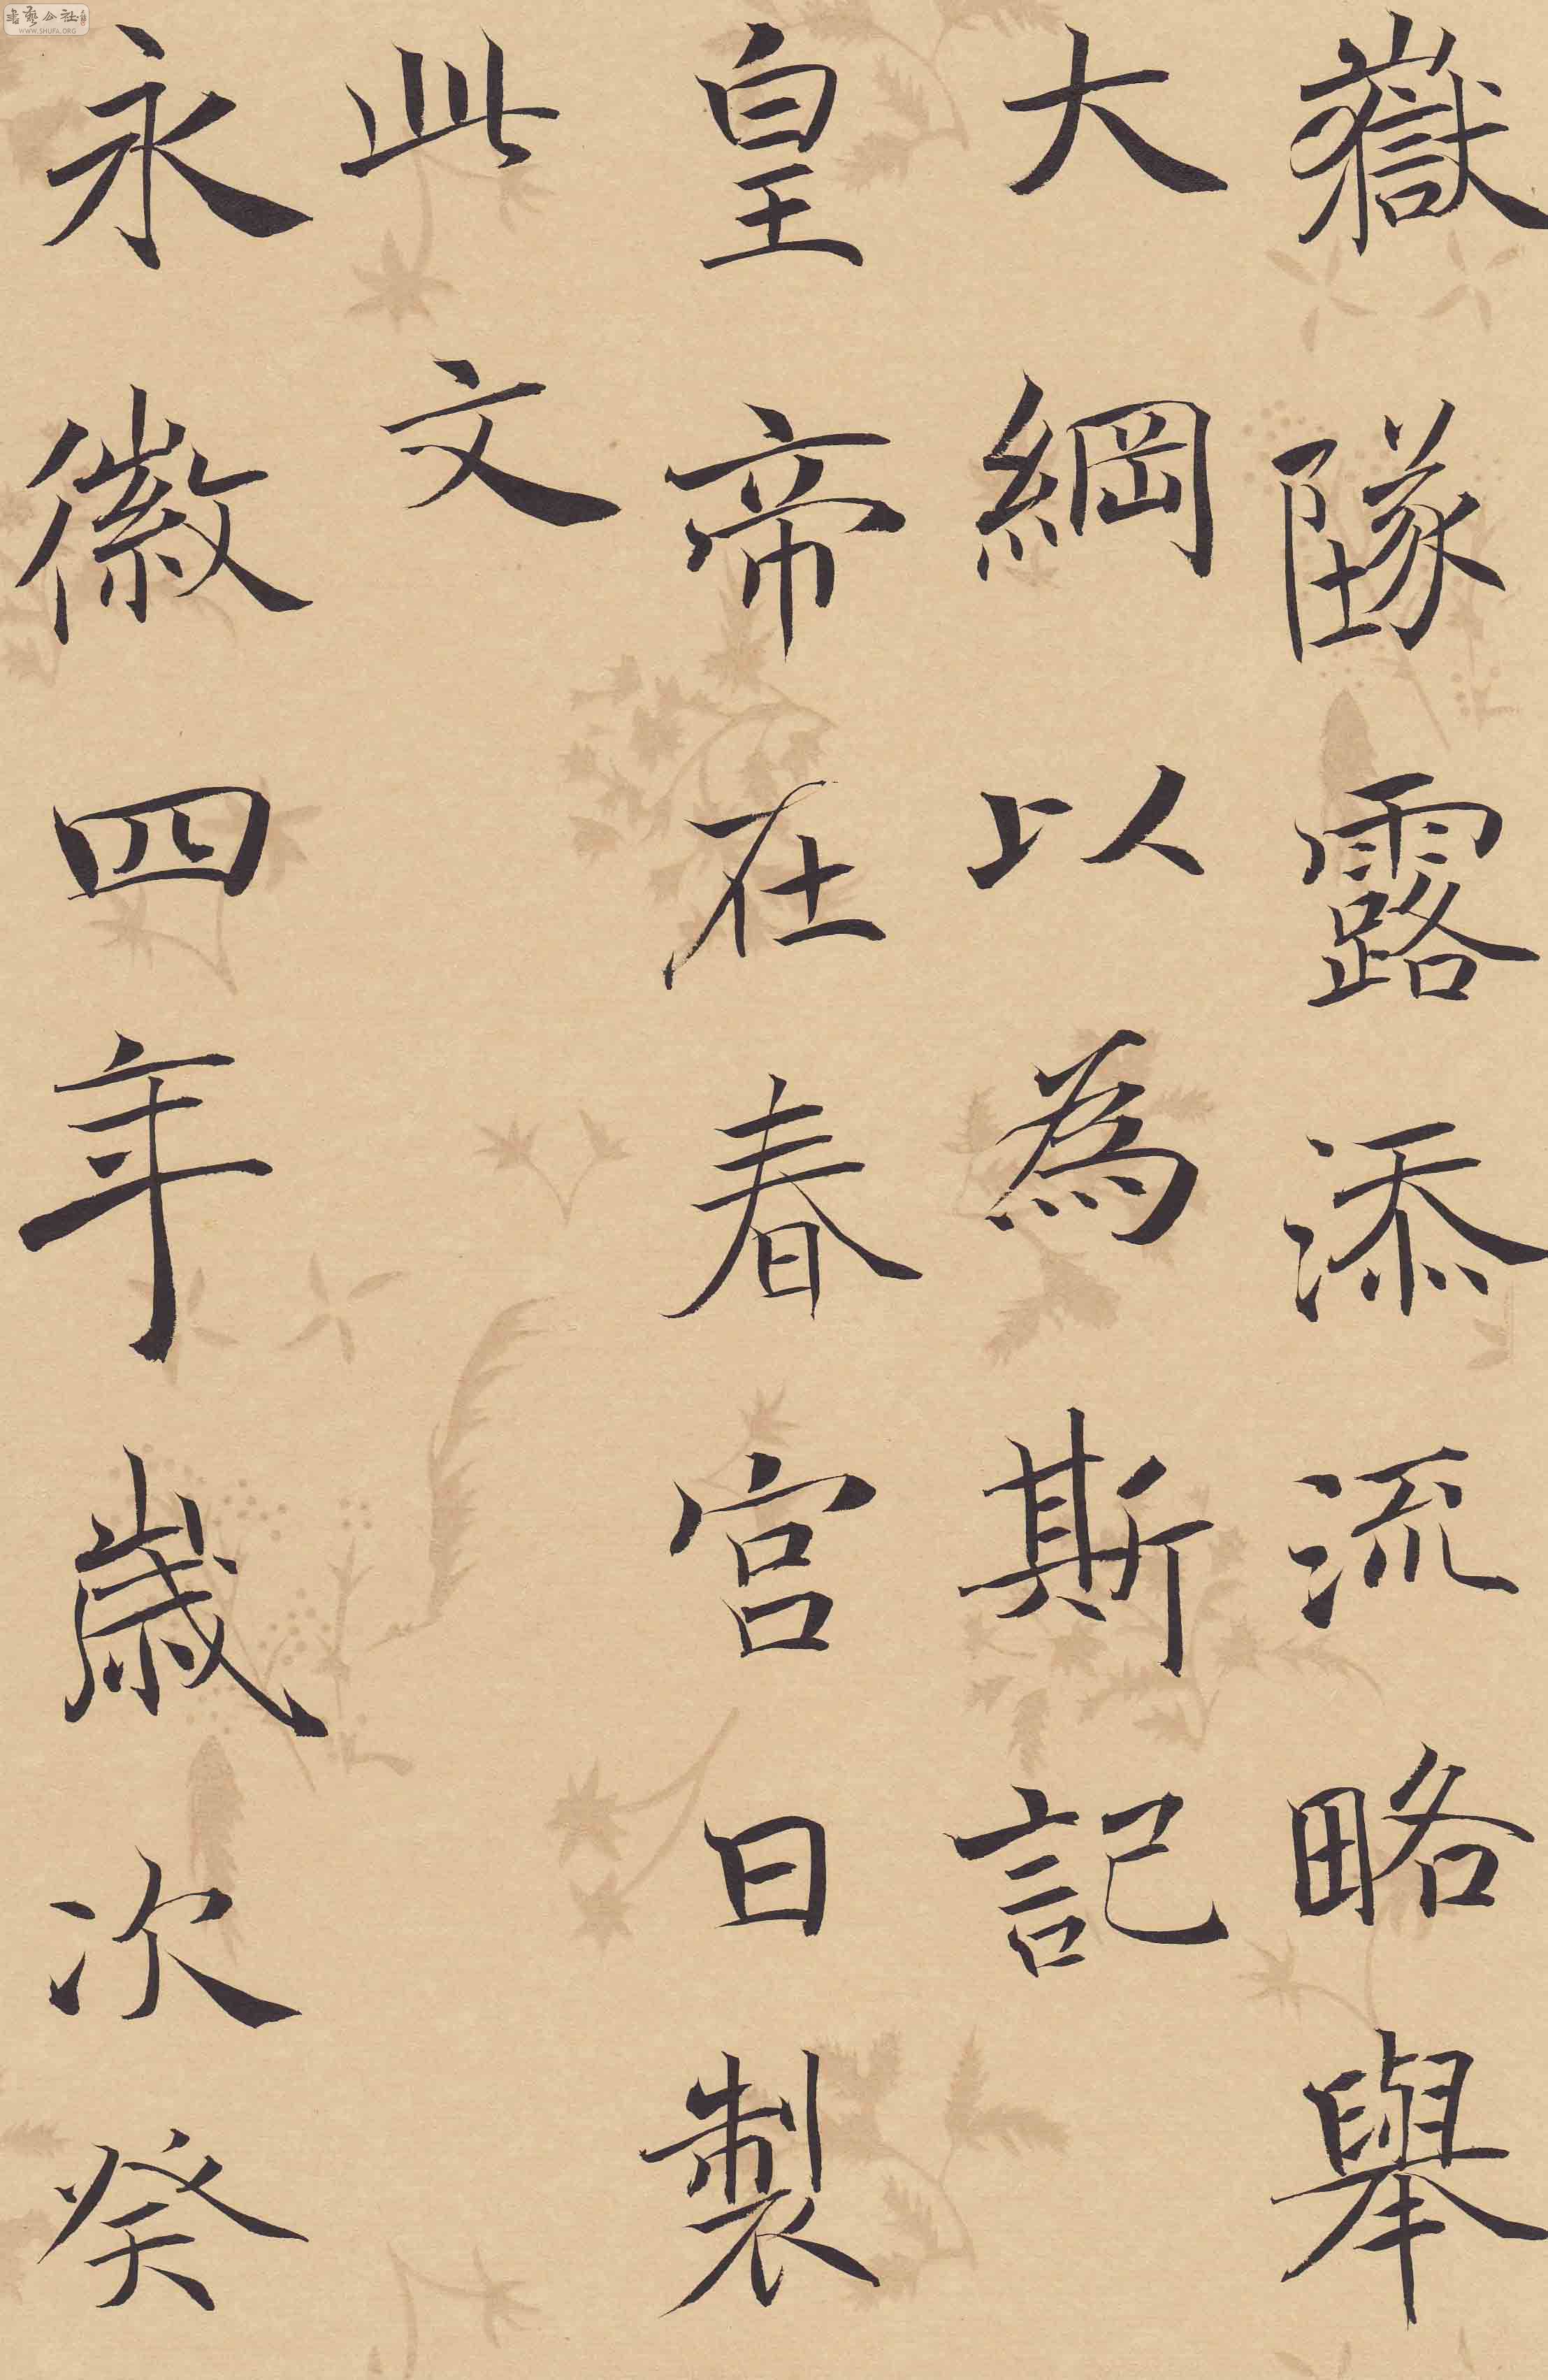 嶽墜露添流略舉
大綱以為斯記
皇帝在春宮日製
此文
永徽四年歲次癸
書藝公社
WWW.SHUFA.ORG